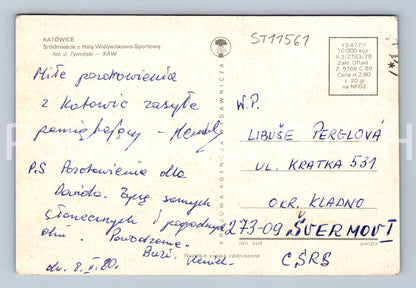 KATOWICE
Śródmieście z Halą Widowiskowo-Sportową
fot. J. Tymiński — KAW
ST11561
13-477/1
10.000 egz.
Zakł. Offset.
Z. 9766 C 89
Cena zł 2.80
+ 20 gr
na NFOZ
Miłe pozdrowienia
z Katowic zasyła
pamiętający - Henek
P.S Pozdrowienia dla
Dawida. Życzę samych
słonecznych i pogodnych
dni. Powodzenia.
Henek.
dn. 8.
KRAJOWA AGENCJA WYDAWNICZA
W.P.
LIBUŠE PERGLOVÁ
UL. KRATKA 531
OKR. KLADNO
273-09 ŠVERMOV I
ČSRS
Wszelkie prawa zastrzeżone
kod
poczta